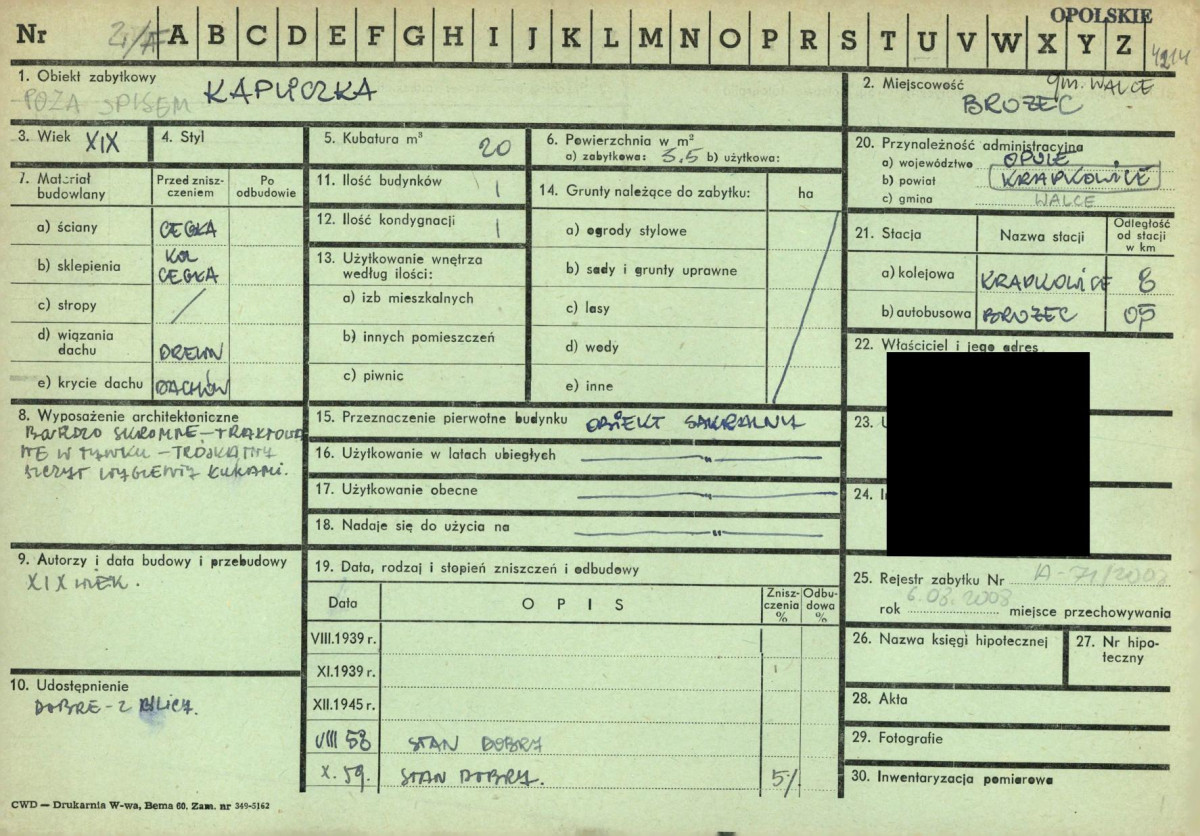 OPOLSKIE
Nr A B C D E F G H I J K L M N O P R S T U V W X Y Z
4214
1. Obiekt zabytkowy
POZA SPISEM KAPLICZKA
2. Miejscowość gm. WALCE
BROŻEC
3. Wiek XIX
4. Styl
5. Kubatura m³ 20
6. Powierzchnia w m²
a) zabytkowa: 3,5 b) użytkowa:
20. Przynależność administracyjna
a) województwo OPOLE
b) powiat KRAPKOWICE
c) gmina WALCE
7. Materiał budowlany
Przed zniszczeniem
Po odbudowie
a) ściany CEGŁA
b) sklepienia KOL CEGŁA
c) stropy /
d) wiązania dachu DREWN
e) krycie dachu DACHÓW
11. Ilość budynków 1
12. Ilość kondygnacji 1
13. Użytkowanie wnętrza według ilości:
a) izb mieszkalnych
b) innych pomieszczeń
c) piwnic
14. Grunty należące do zabytku: ha
a) ogrody stylowe
b) sady i grunty uprawne
c) lasy
d) wody
e) inne
21. Stacja
Nazwa stacji
Odległość od stacji w km
a) kolejowa KRAPKOWICE 8
b) autobusowa BROŻEC 05
22. Właściciel i jego adres
23. U
24. I
8. Wyposażenie architektoniczne
BARDZO SKROMNE – TRAKTOWA
NE W TYNKU – TRÓJKĄTNY
SZCZYT WYGIĘTY ŁUKAMI.
15. Przeznaczenie pierwotne budynku OBIEKT SAKRALNY
16. Użytkowanie w latach ubiegłych —„—
17. Użytkowanie obecne —„—
18. Nadaje się do użycia na —„—
9. Autorzy i data budowy i przebudowy
XIX WIEK.
10. Udostępnienie
DOBRE – Z ULICY.
19. Data, rodzaj i stopień zniszczeń i odbudowy
Data
OPIS
Zniszczenia %
Odbudowa %
VIII.1939 r.
XI.1939 r.
XII.1945 r.
VIII 58 STAN DOBRY
X. 59. STAN DOBRY. 5%
25. Rejestr zabytku Nr A-71/2008
6.03.2008
rok miejsce przechowywania
26. Nazwa księgi hipotecznej
27. Nr hipoteczny
28. Akta
29. Fotografie
30. Inwentaryzacja pomiarowa
CWD — Drukarnia W-wa, Bema 60. Zam. nr 349-5162